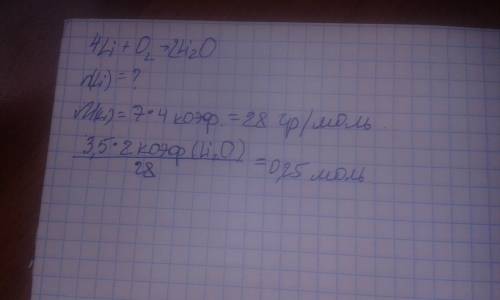 4Li + O₂ → 2Li₂O
n(Li) = ?
M(Li) = 7*4 коэф. = 28 гр/моль
3,5*2 коэф (Li₂O)
28
= 0,25 моль